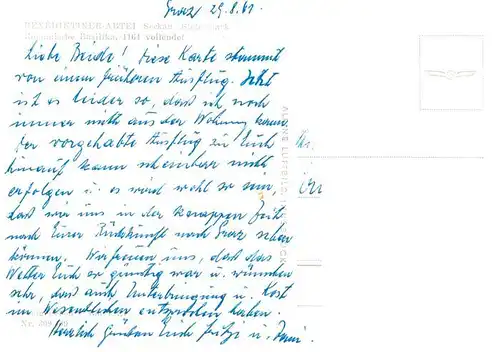 Graz 29.8.61.
BENEDIKTINER-ABTEI Seckau
Basilika, 1164 vollendet
Liebe Beide! Diese Karte stammt
von einem früheren Ausflug. Jetzt
ist es leider so, dass ich noch
immer nicht aus der Wohnung kann.
Der vorgehabte Ausflug zu Euch
hinauf kann scheinbar nicht
erfolgen u. es wird wohl so sein,
dass wir uns in der knappen Zeit
nach Eurer Rückkunft nach Graz sehen
können. Wir freuen uns, dass das
Wetter Euch so günstig war u. wünschen
sehr, dass auch Unterbringung u. Kost
im Wesentlichen entsprochen haben.
Herzlich grüssen Euch Fritzi u.
ALPINE LUFTBILD